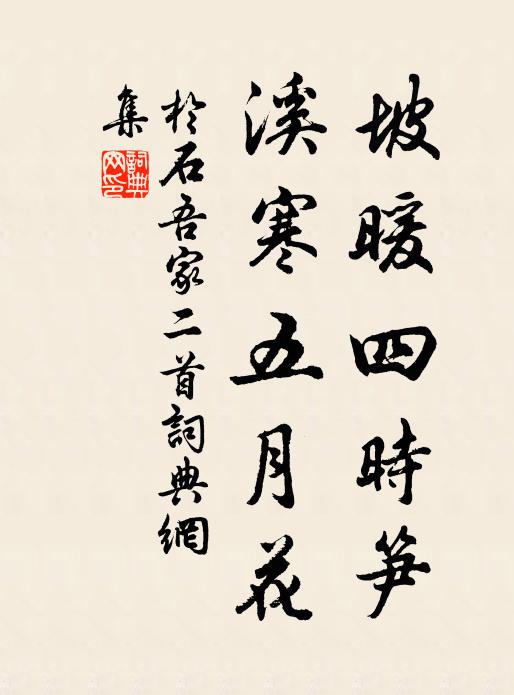 坡暖四時笋
溪寒五月花
於石吾家二首詞典網
集
詞典
网印